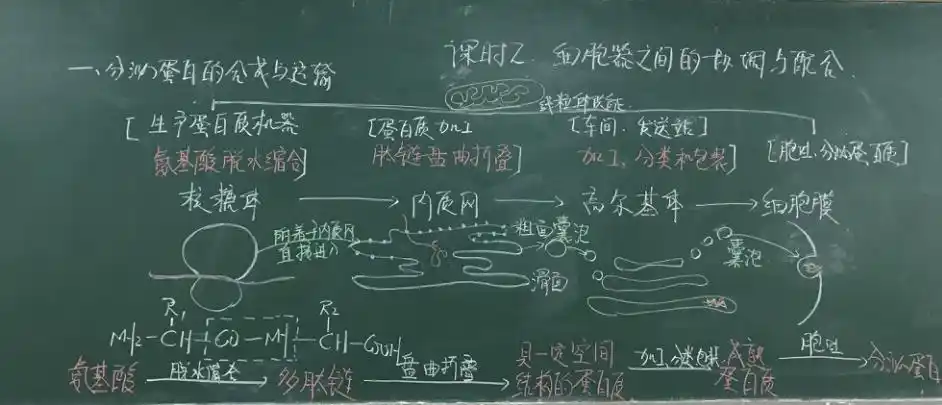 课时2. 细胞器之间的协调与配合.
一、分泌蛋白的合成与运输
线粒体供能
[生产蛋白质机器 [蛋白质加工 [车间. 发送站]
氨基酸脱水缩合] 肽链盘曲折叠] 加工、分类和包装] [胞吐、分泌蛋白质]
核糖体 → 内质网 → 高尔基体 → 细胞膜
附着于内质网 粗面 囊泡
直接进入 囊泡
滑面
R1 R2
NH2-CH-CO-NH-CH-COOH
氨基酸 脱水缩合→ 多肽链 盘曲折叠→ 具一定空间 加工、分类包装→ 成熟 胞吐→ 分泌蛋白
结构的蛋白质 蛋白质